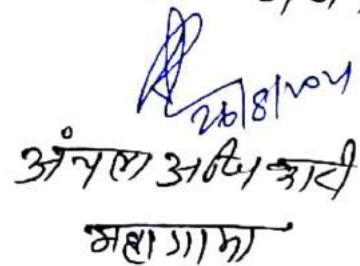 26/8/2024
अंचल अधिकारी
महागामा